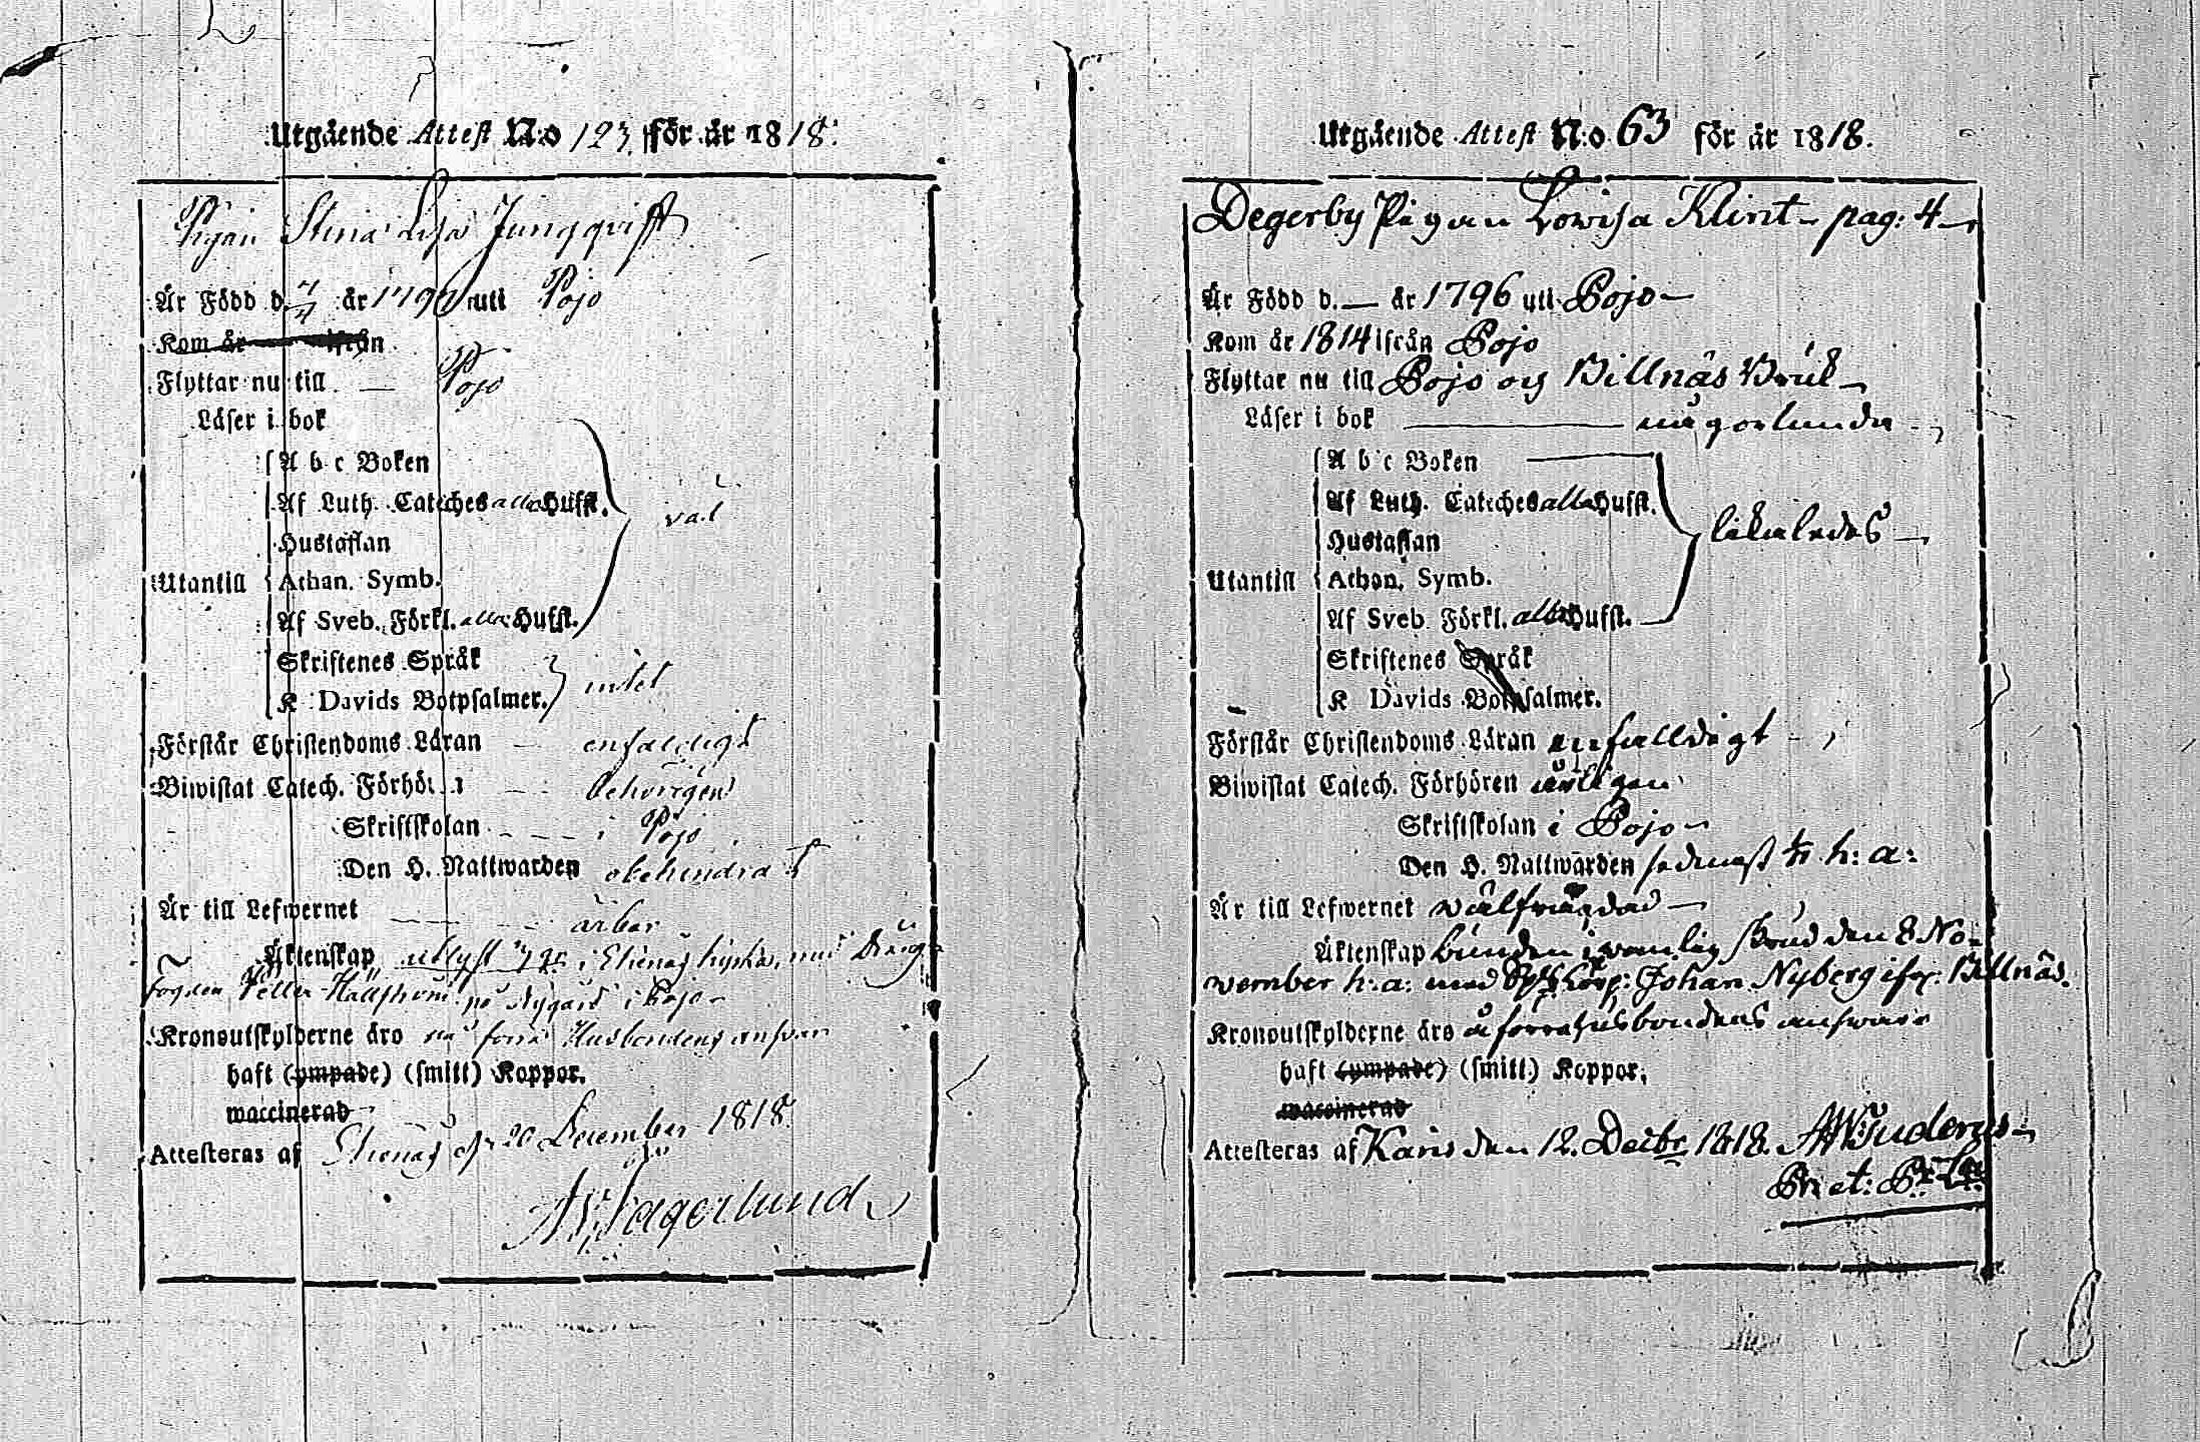 Utgående Attest N:o 123 för år 1818.
Pigan Stina Lisa Jungqvist
Är Född d. 4/4 år 179 uti Pojo
Kom år ifrån
Flyttar nu till — Pojo
Läser i bok
A b c Boken
Af Luth. Cateches alla Hufst.
Hustaflan
väl
Utantill Athan. Symb.
Af Sveb. Förkl. alla Hufst.
Skriftenes Språk
intet
K Davids Botpsalmer.
Förstår Christendoms Läran enfaldigt
Biwistat Catech. Förhören behörigen
Skriftskolan i Pojo
Den H. Nattwarden obehindrat
Är till Lefwernet ärbar
Äktenskap utlyst i Ekenäs kyrka, med Dräng
fogden Petter Hällström på Nygård i Pojo
Kronoutskylderne äro på förra Husbondens ansvar
haft (ympade) (smitt) Koppor.
waccinerad
Attesteras af Ekenäs d. 20 December 1818.
Fagerlund
Utgående Attest N:o 63 för år 1818.
Degerby Pigan Lowisa Klint — pag: 4 —
Är Född d. — år 1796 uti Pojo —
Kom år 1814 ifrån Pojo
Flyttar nu till Pojo och Billnäs Bruk —
Läser i bok — någorlunda
A b c Boken
Af Luth. Cateches alla Hufst.
likaledes —
Hustaflan
Utantill Athan. Symb.
Af Sveb. Förkl. alla Hufst.
Skriftenes Språk
K Davids Botpsalmer.
Förstår Christendoms Läran enfalldigt
Biwistat Catech. Förhören årligen
Skriftskolan i Pojo —
Den H. Nattwarden sednast h: a:
Är till Lefwernet wälfrägdad —
Äktenskap bunden i wanlig Stånd den 8 No-
vember h: a: med Johan Nyberg ifr: Billnäs.
Kronoutskylderne äro å förra husbondens answar
haft (ympade) (smitt) Koppor.
waccinerad
Attesteras af Karis den 12. Decbr 1818.